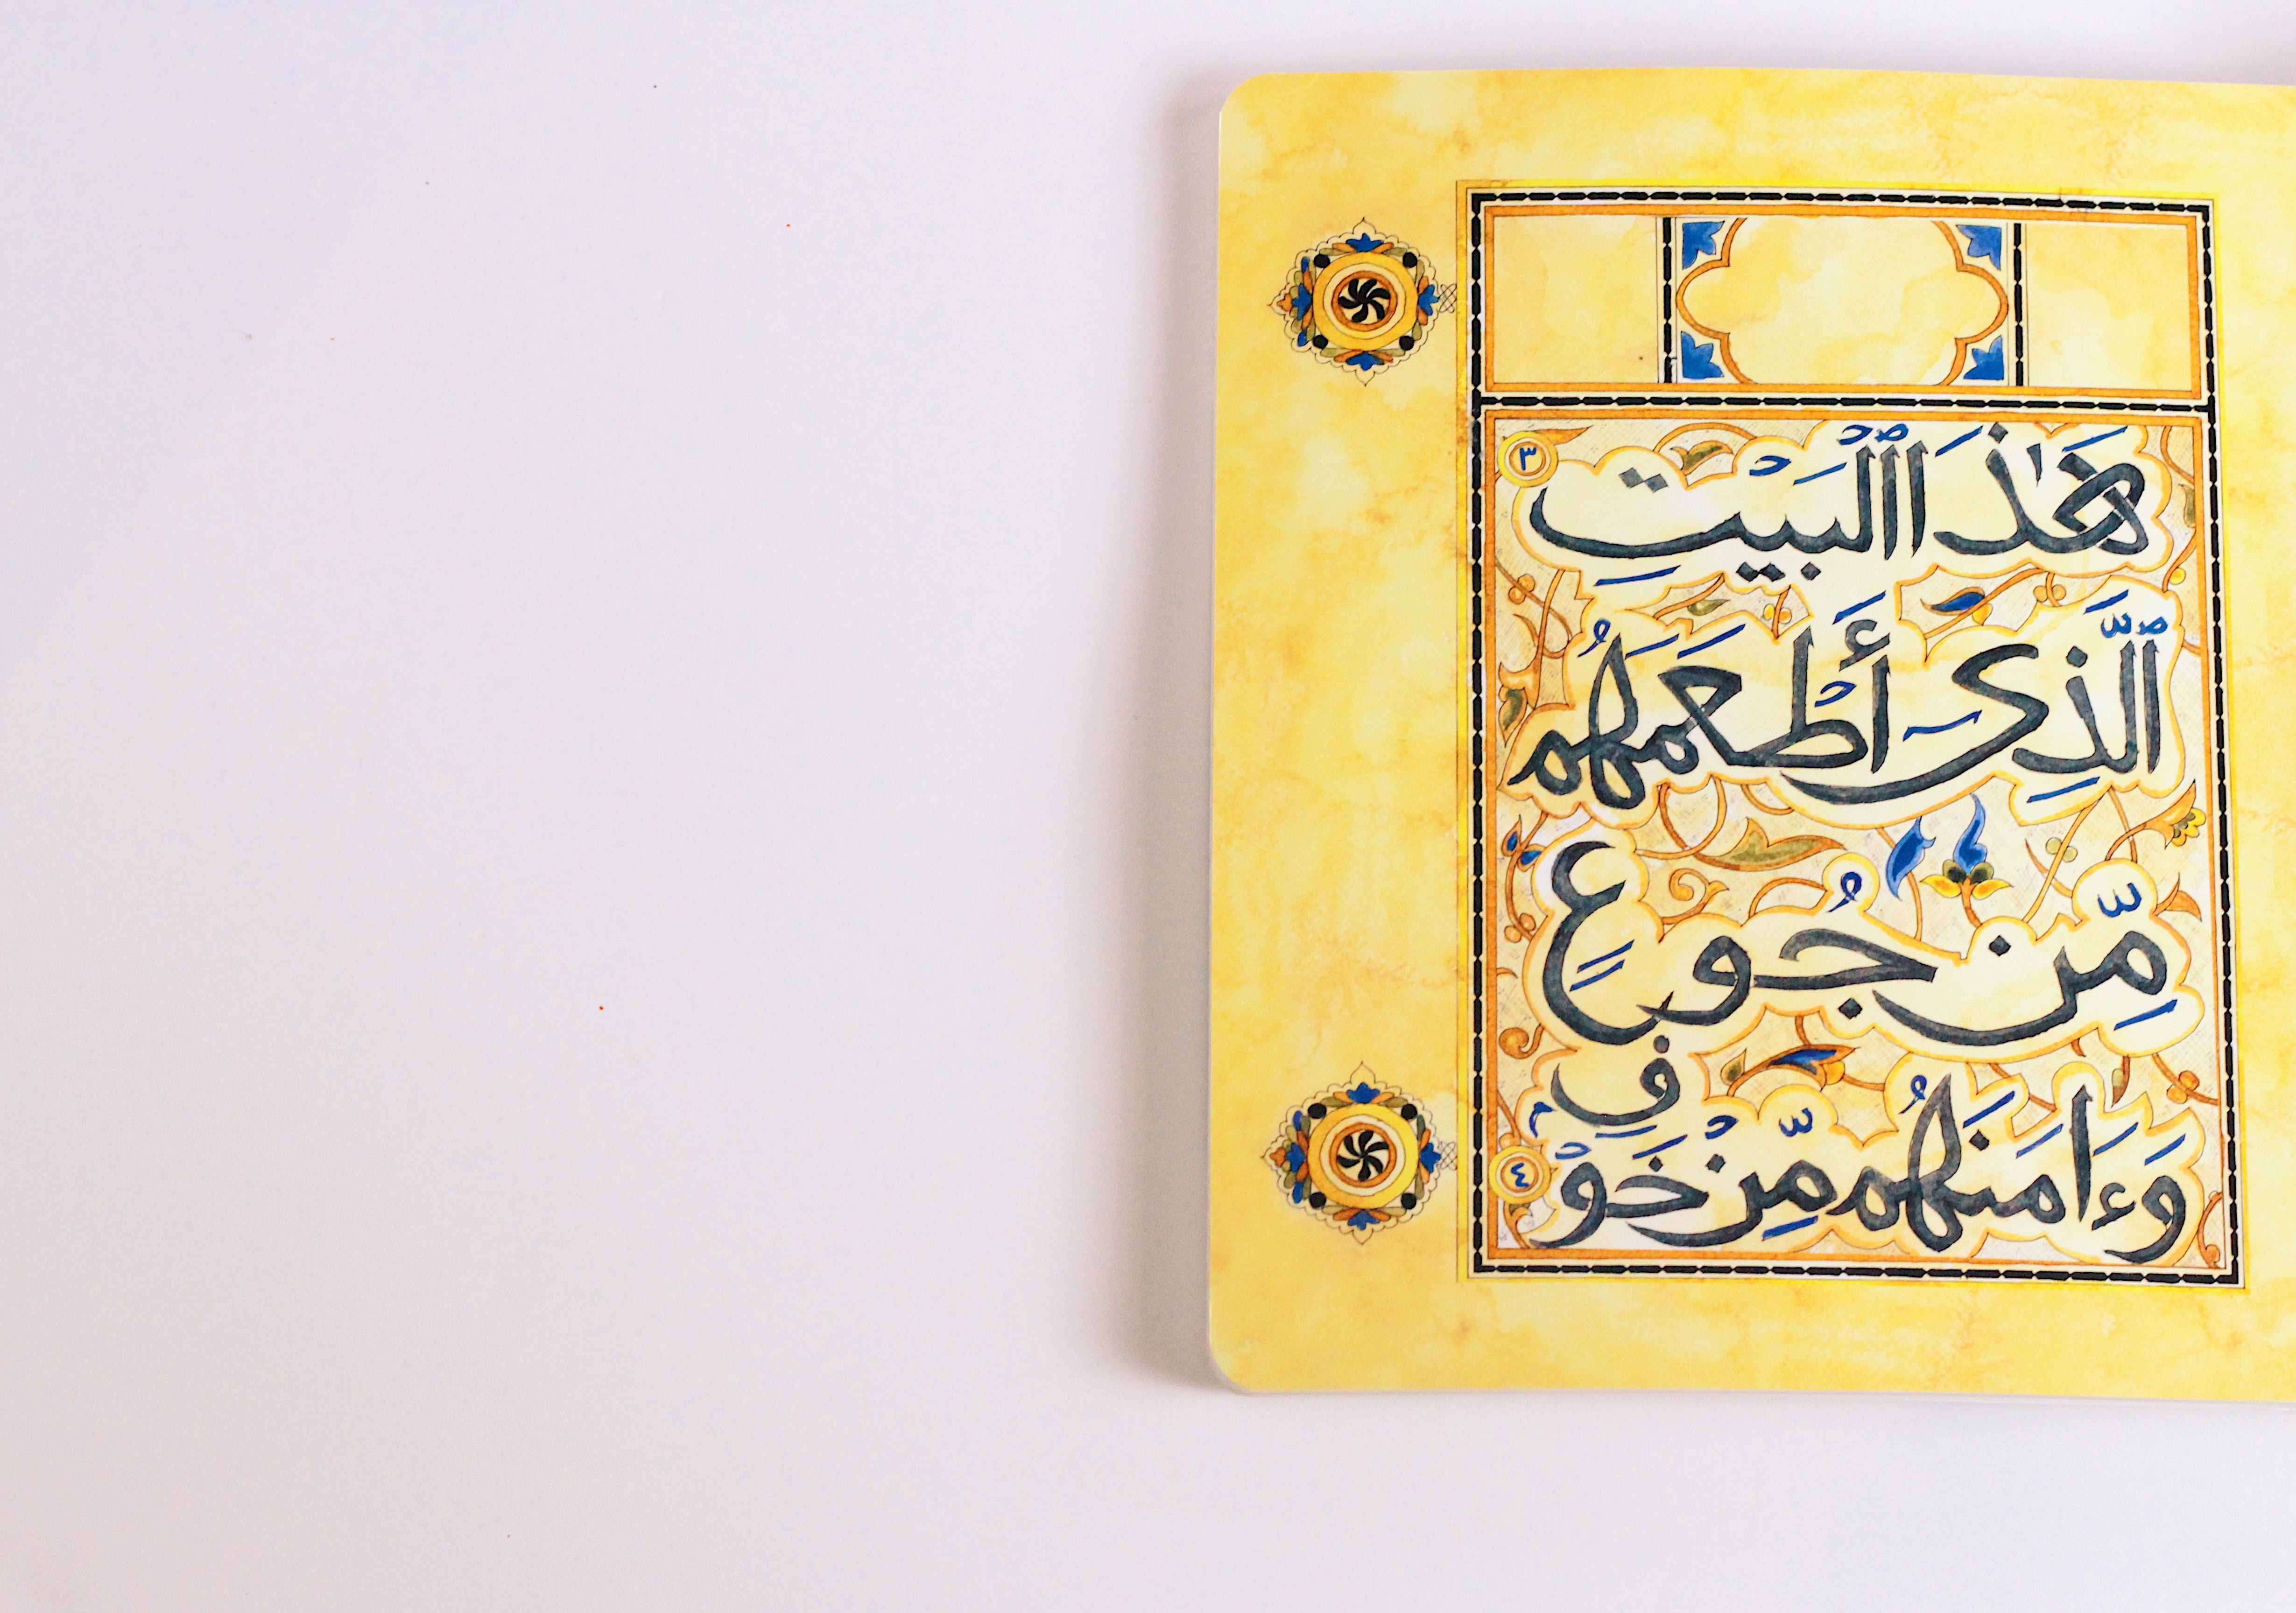 هَٰذَا ٱلْبَيْتِ ٣
ٱلَّذِى أَطْعَمَهُم
مِّن جُوعٍ
وَءَامَنَهُم مِّنْ خَوْفٍ ٤